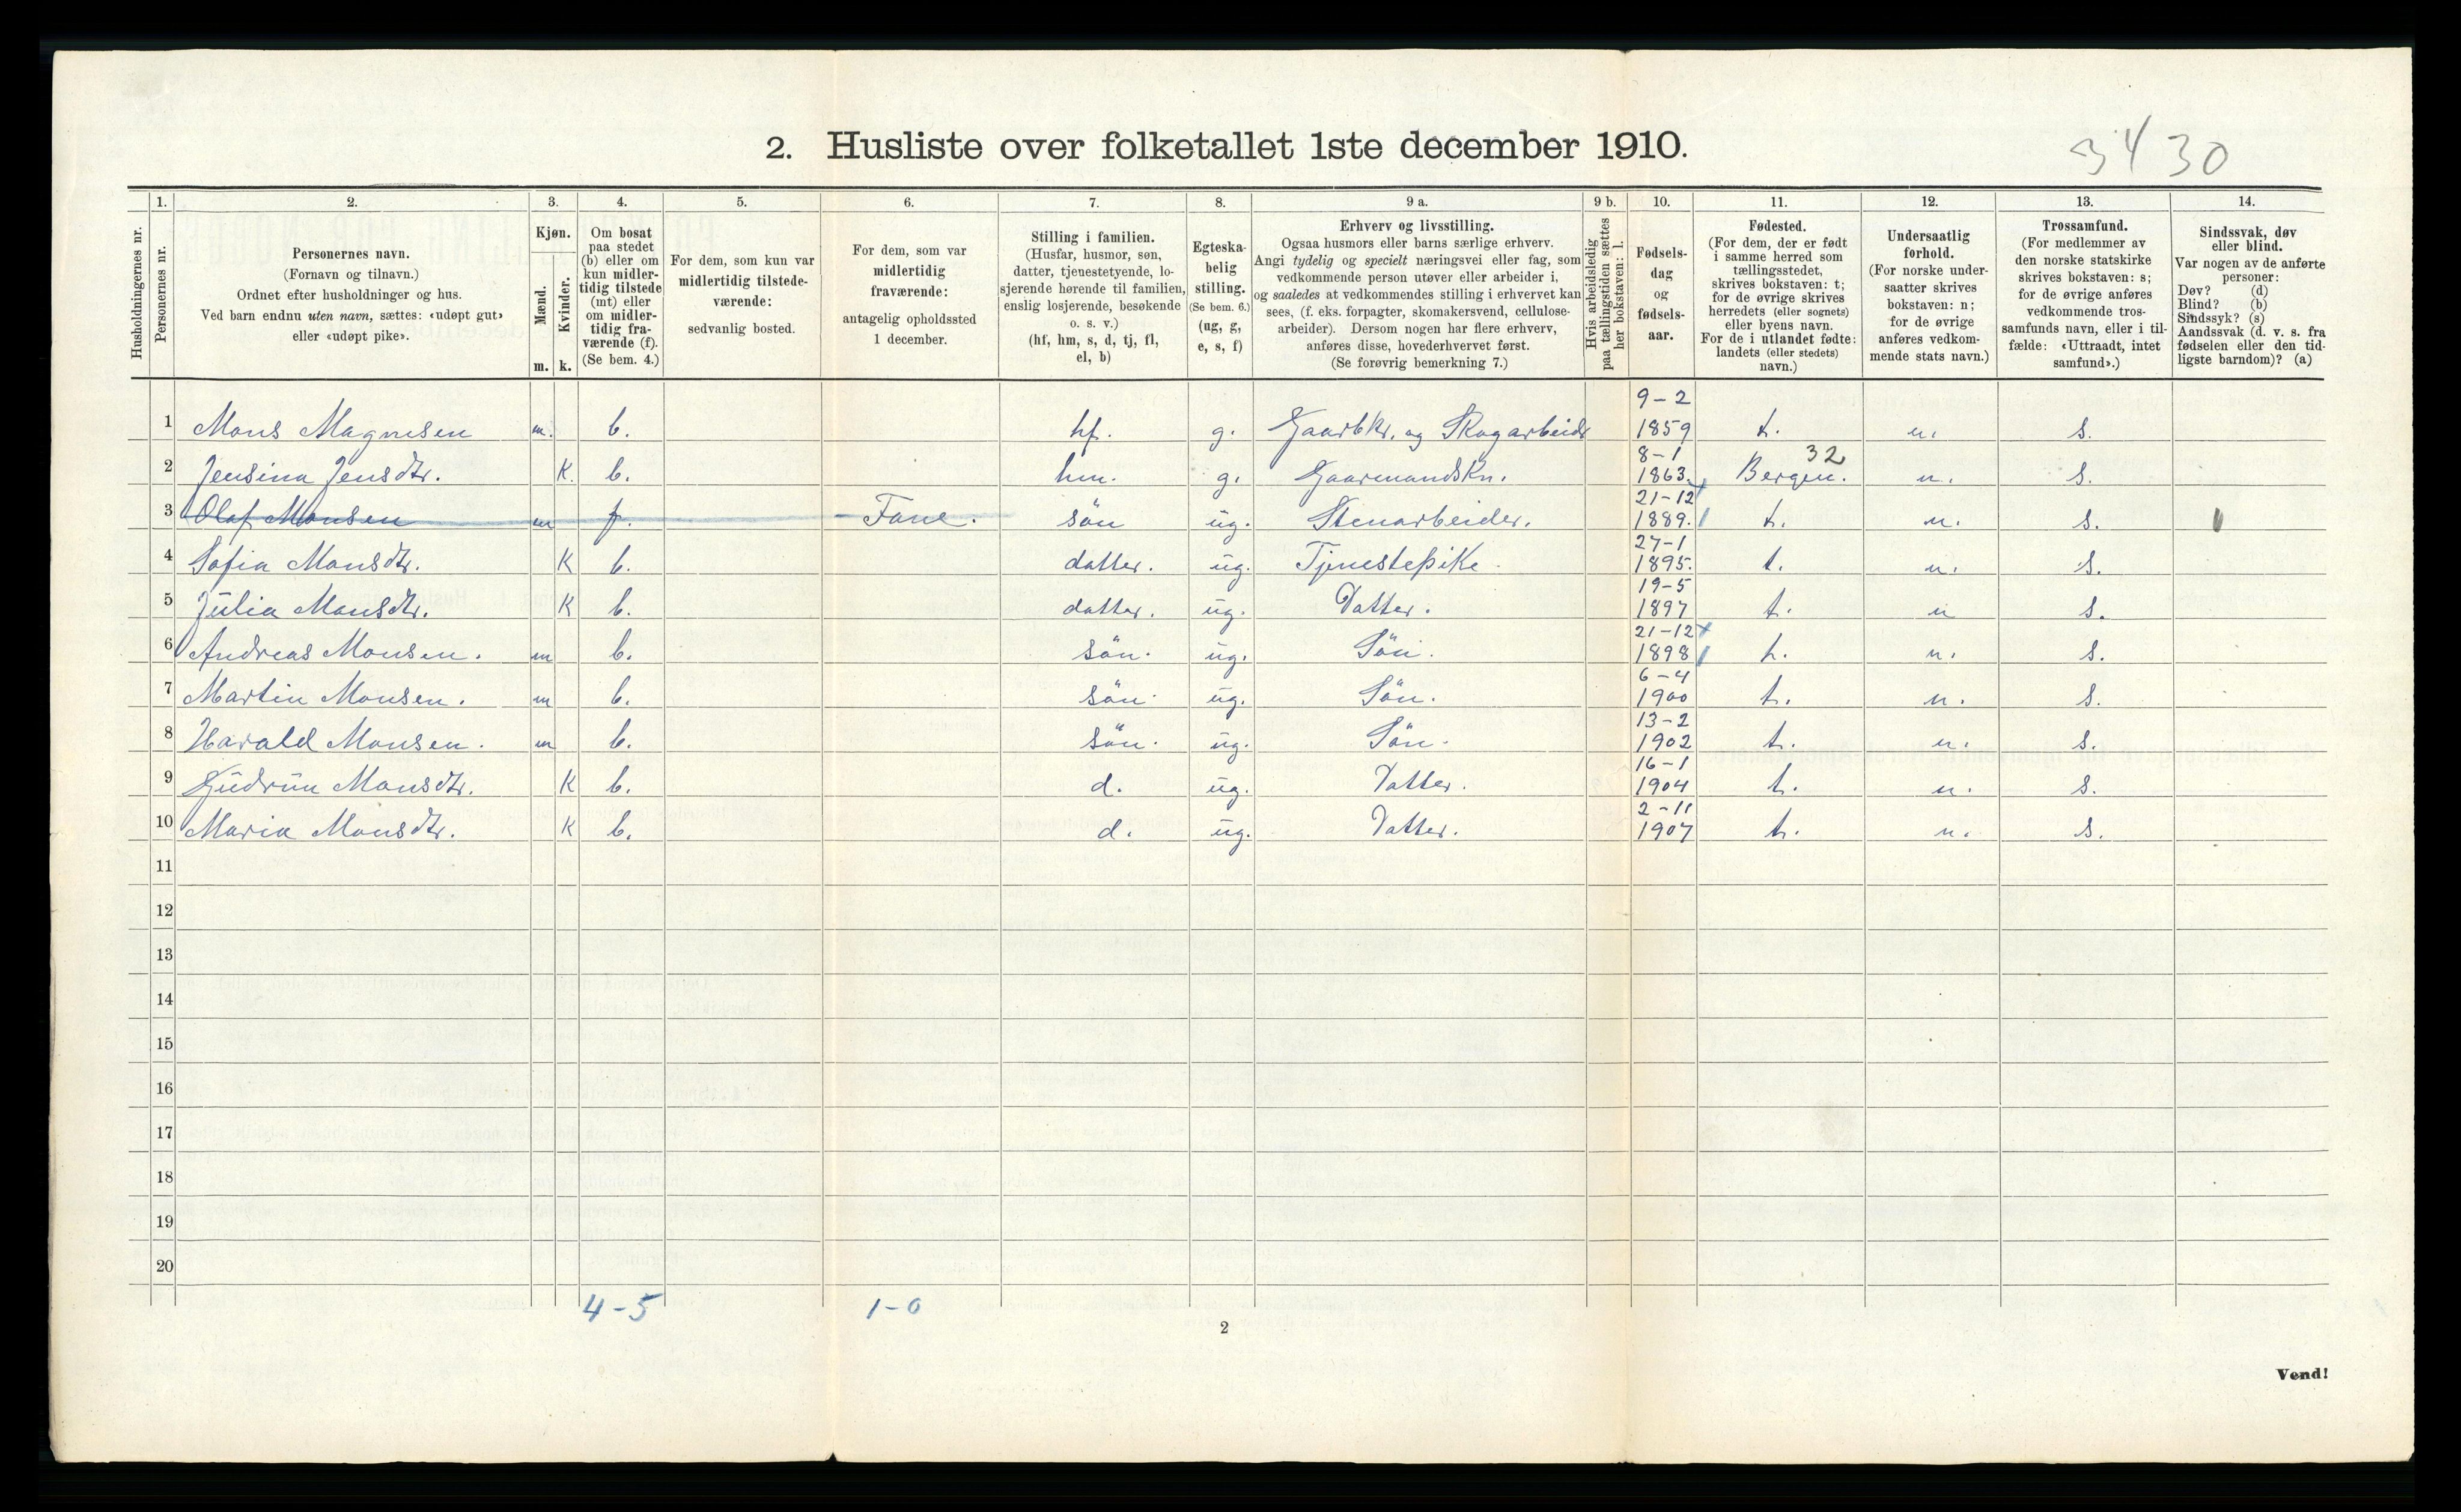 2. Husliste over folketallet 1ste december 1910.
3430
1. 2. 3. 4. 5. 6. 7. 8. 9 a. 9 b. 10. 11. 12. 13. 14.
Husholdningernes nr.
Personernes nr.
Personernes navn.
(Fornavn og tilnavn.)
Ordnet efter husholdninger og hus.
Ved barn endnu uten navn, sættes: «udøpt gut»
eller «udøpt pike».
Kjøn.
Mænd.
Kvinder.
m. k.
Om bosat
paa stedet
(b) eller om
kun midler-
tidig tilstede
(mt) eller
om midler-
tidig fra-
værende (f).
(Se bem. 4.)
For dem, som kun var
midlertidig tilstede-
værende:
sedvanlig bosted.
For dem, som var
midlertidig
fraværende:
antagelig opholdssted
1 december.
Stilling i familien.
(Husfar, husmor, søn,
datter, tjenestetyende, lo-
sjerende hørende til familien,
enslig losjerende, besøkende
o. s. v.)
(hf, hm, s, d, tj, fl,
el, b)
Egteska-
belig
stilling.
(Se bem. 6.)
(ug, g,
e, s, f)
Erhverv og livsstilling.
Ogsaa husmors eller barns særlige erhverv.
Angi tydelig og specielt næringsvei eller fag, som
vedkommende person utøver eller arbeider i,
og saaledes at vedkommendes stilling i erhvervet kan
sees, (f. eks. forpagter, skomakersvend, cellulose-
arbeider). Dersom nogen har flere erhverv,
anføres disse, hovederhvervet først.
(Se forøvrig bemerkning 7.)
Hvis arbeidsledig
paa tællingstiden sættes
her bokstaven: l.
Fødsels-
dag
og
fødsels-
aar.
Fødested.
(For dem, der er født
i samme herred som
tællingsstedet,
skrives bokstaven: t;
for de øvrige skrives
herredets (eller sognets)
eller byens navn.
For de i utlandet fødte:
landets (eller stedets)
navn.)
Undersaatlig
forhold.
(For norske under-
saatter skrives
bokstaven: n;
for de øvrige
anføres vedkom-
mende stats navn.)
Trossamfund.
(For medlemmer av
den norske statskirke
skrives bokstaven: s;
for de øvrige anføres
vedkommende tros-
samfunds navn, eller i til-
fælde: «Uttraadt, intet
samfund».)
Sindssvak, døv
eller blind.
Var nogen av de anførte
personer:
Døv? (d)
Blind? (b)
Sindssyk? (s)
Aandssvak (d. v. s. fra
fødselen eller den tid-
ligste barndom)? (a)
1 Mons Magnesen m. b. hf. g. Gaarbkr. og Skogarbeidr 9-2 1859 t. n. s.
2 Jensina Jensdtr. K. b. hm. g. Gaarmandskn. 8-1 1863. Bergen. 32 n. s.
3 Olaf Monsen m f. Fane. sön ug. Stenarbeider. 21-12 1889. t. n. s.
4 Sofia Monsdtr. K b. datter. ug. Tjenestepike. 27-1 1895. t. n. s.
5 Julia Monsdtr. K b. datter. ug. Datter. 19-5 1897 t. n s.
6 Andreas Monsen. m b. sön. ug. Sön. 21-12 1898 t. n. s.
7 Martin Monsen. m b. sön. ug. Sön. 6-4 1900 t. n. s.
8 Harald Monsen. m b. sön. ug. Sön. 13-2 1902 t. n. s.
9 Gudrun Monsdtr. K b. d. ug. Datter. 16-1 1904 t. n. s.
10 Maria Monsdtr. K b. d. ug. Datter. 2-11 1907 t. n. s.
11
12
13
14
15
16
17
18
19
20
4-5 1-0
2
Vend!